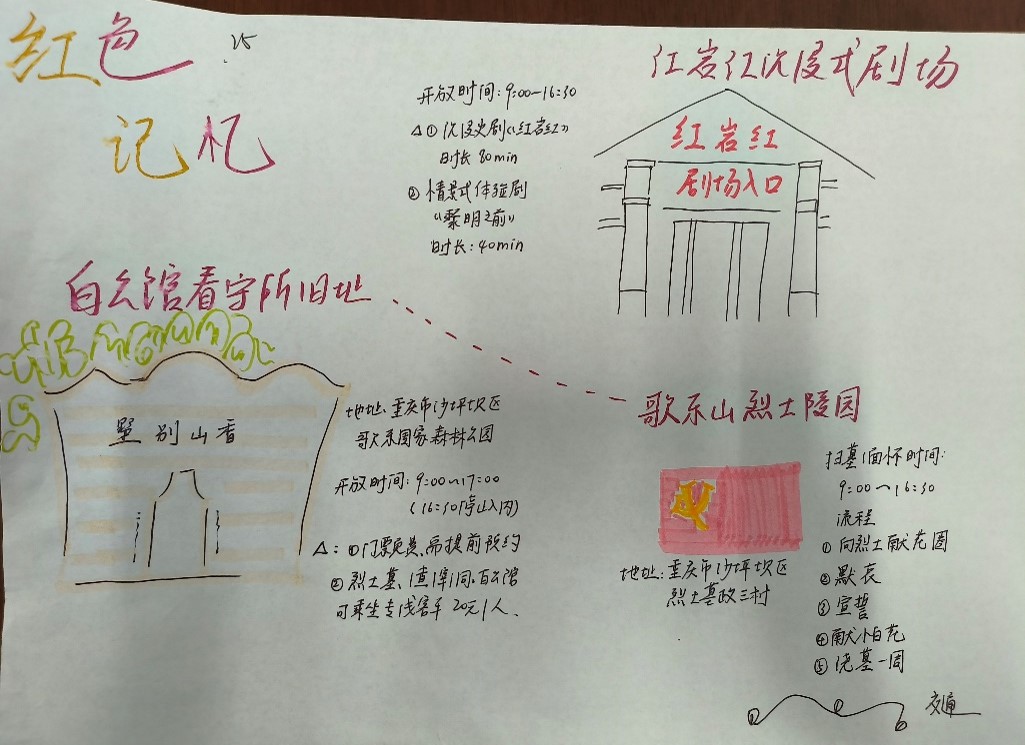 红色
记忆
25
红岩红沉浸式剧场
开放时间:9:00-16:30
△①沉浸史剧《红岩红》
时长 80min
②情景式体验剧
《黎明之前》
时长:40min
红岩红
剧场入口
白公馆看守所旧址
墅别山香
地址:重庆市沙坪坝区
歌乐国家森林公园
开放时间:9:00~17:00
(16:30停止入内)
△:①门票免费,需提前预约
②烈士墓、渣滓洞、白公馆
可乘坐专线客车 20元/人、
歌乐山烈士陵园
地址:重庆市沙坪坝区
烈士墓政三村
扫墓缅怀时间:
9:00~16:30
流程
①向烈士献花圈
②默哀
③宣誓
④献小白花
⑤绕墓一周
交通